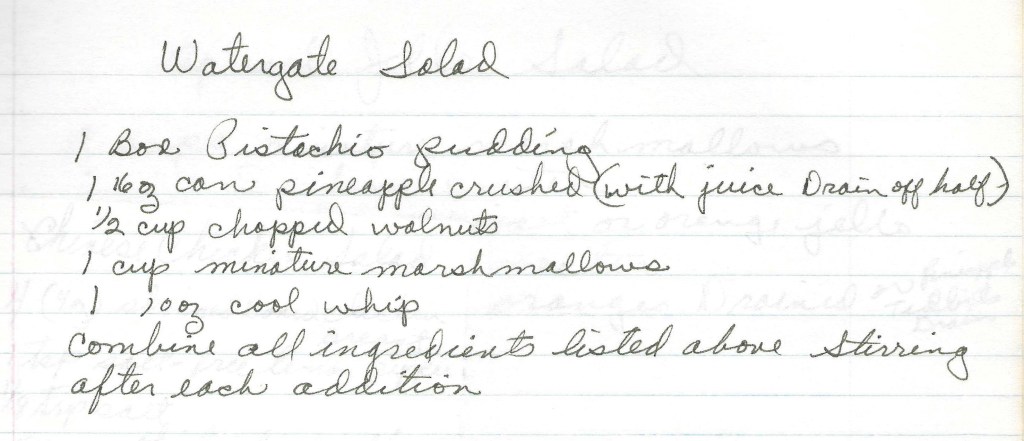 Watergate Salad
1 Box Pistachio pudding
1 16oz can pineapple crushed (with juice Drain off half)
1/2 cup chopped walnuts
1 cup minature marshmallows
1 10oz cool whip
Combine all ingredients listed above stirring
after each addition